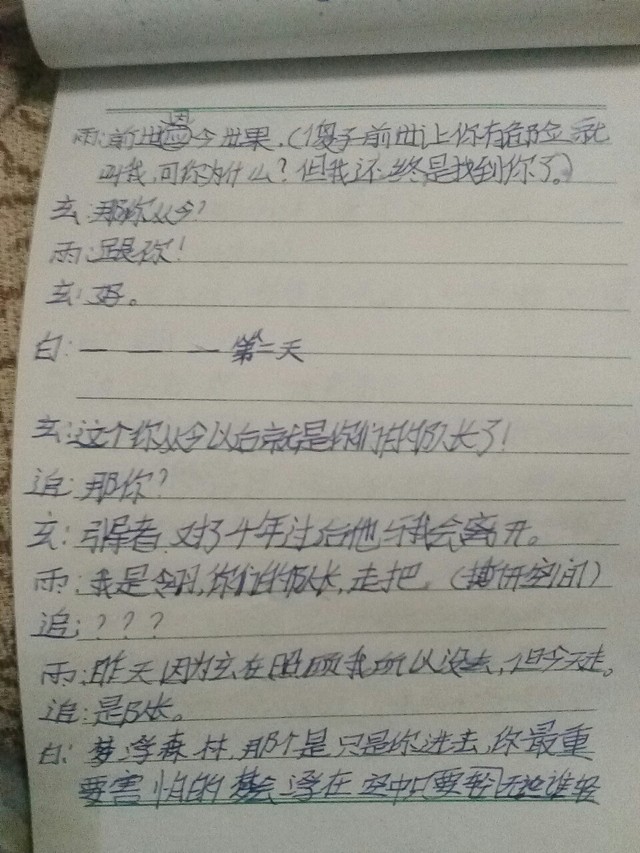 雨:前世因今世果,(傻子前世让你有危险就
叫我,可你为什么?但我还终是找到你了。)
玄:那你从今?
雨:跟你!
玄:好。
白:一 一 一 第二天
玄:这个你从今以后就是你们的队长了!
追:那你?
玄:引导者,对了十年过后他与我会离开。
雨:我是翎,你们的队长,走把。(撕开空间)
追:???
雨:昨天因为玄在照顾我所以没去,但今天走。
追:是队长。
白:梦浮森林,那个是只是你进去,你最重
要害怕的会浮在空中只要谁轻